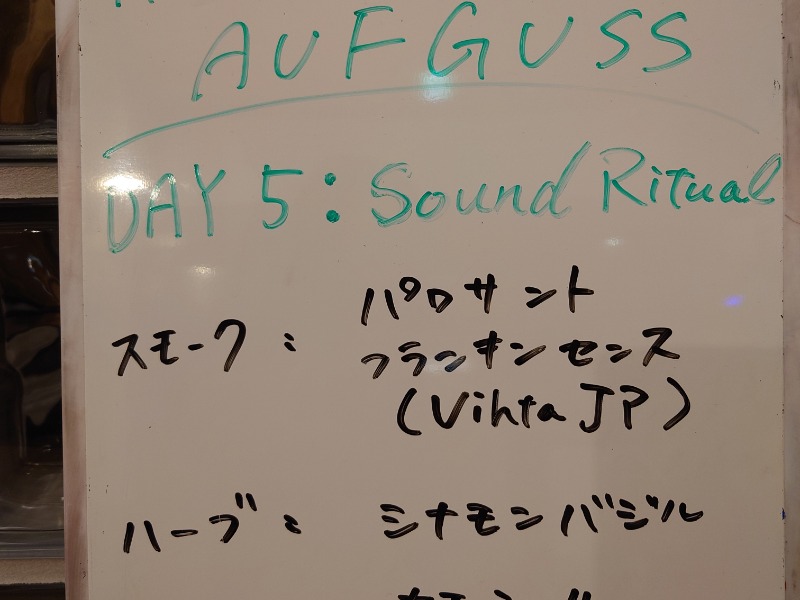 AUFGUSS
DAY 5: Sound Ritual
スモーク: パロサント
フランキンセンス
(Vihta JP)
ハーブ: シナモンバジル